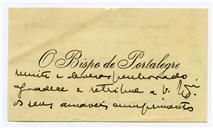 O Bispo de Portalegre
muito e deveras penhorado,
agradece e retribue a V. Ex.
os seus amaveis cumprimentos